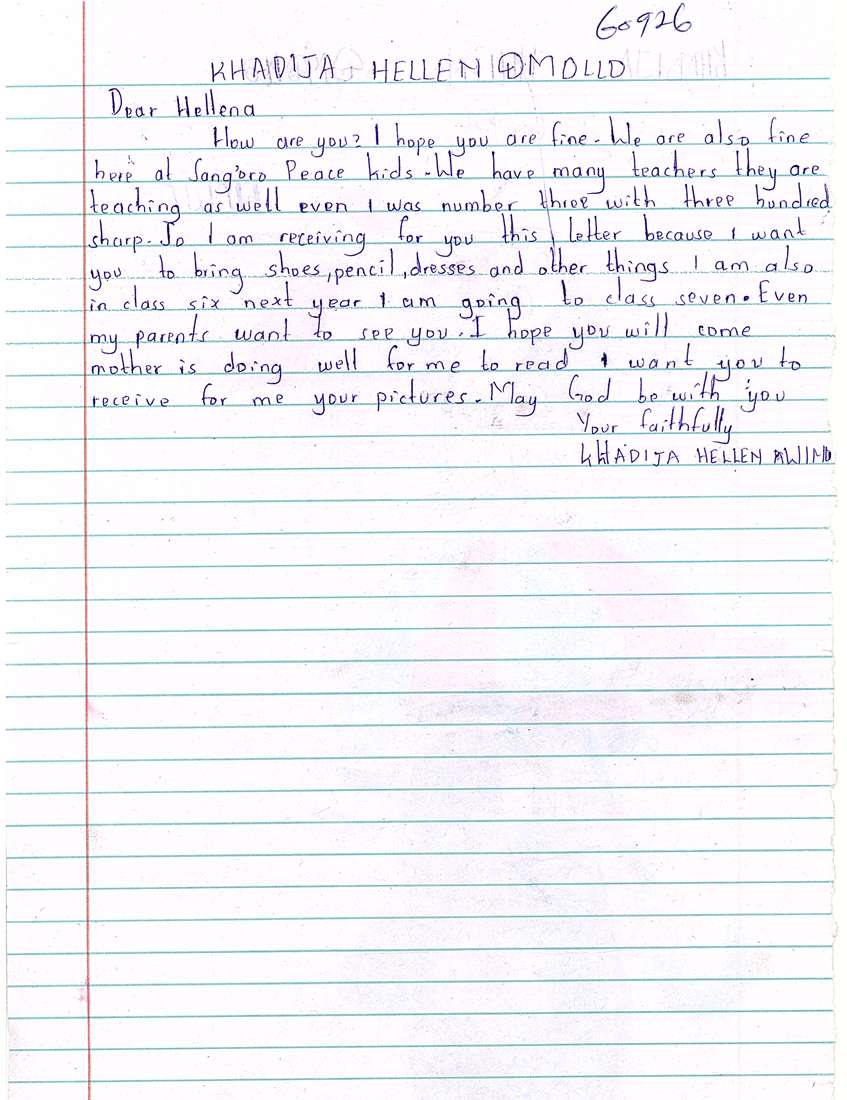 60926
KHADIJA HELLEN OMOLLO
Dear Hellena
How are you? I hope you are fine. We are also fine
here at Sang'oro Peace kids. We have many teachers they are
teaching as well even I was number three with three hundred
sharp. So I am receiving for you this letter because I want
you to bring shoes, pencil, dresses and other things I am also
in class six next year I am going to class seven. Even
my parents want to see you. I hope you will come
mother is doing well for me to read I want you to
receive for me your pictures. May God be with you
Your faithfully
KHADIJA HELLEN AWINO